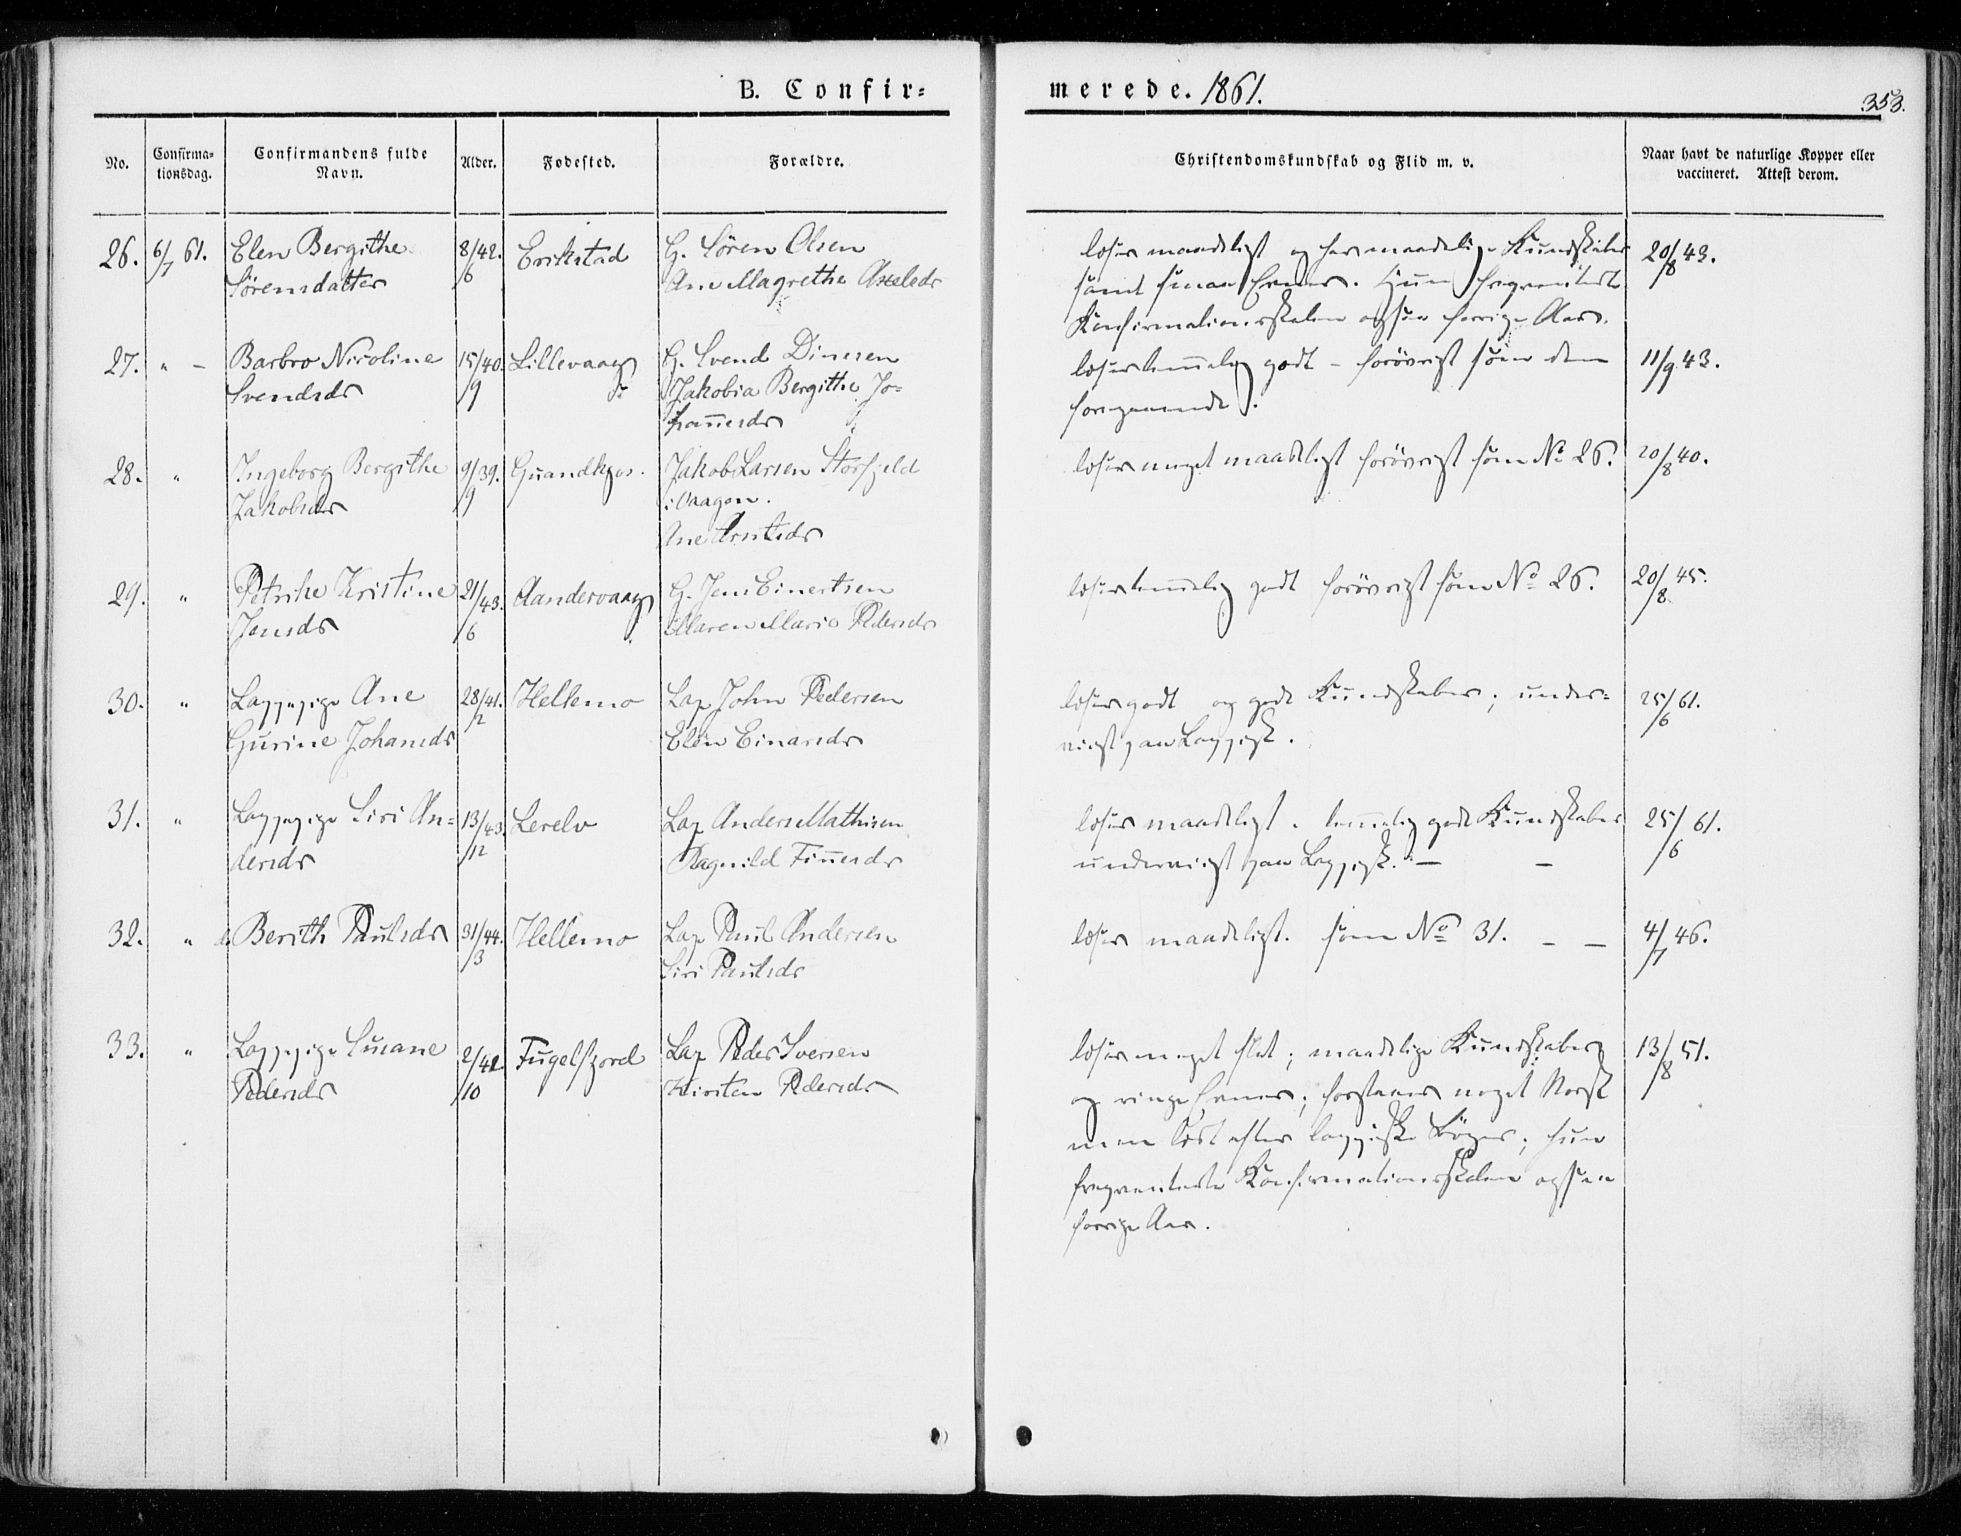 B. Confir=
merede. 1861.
353.
No.
Confirma=
tionsdag.
Confirmandens fulde
Navn.
Alder.
Fødested.
Forældre.
Christendomskundskab og Flid m. v.
Naar havt de naturlige Kopper eller
vaccineret. Attest derom.
26. 6/7 61. Elen Bergithe 8/42. Erikstad G. Sören Olsen læser maadeligt og har maadelige Kundskaber 20/8 43.
Sörensdatter /6 Ane Magrethe Axelsdr samt smaa Evner. Hun frequenterede
Konfirmationsskolen ogsaa forrige Aar.
27. " – Barbro Nicoline 15/40. Lillevaag G. Svend Dinesen læser temmelig godt – forövrigt som den 11/9 43.
Svendsdr /9 Jakobia Bergithe Jo= foregaaende.
hannesdr
28. " Ingeborg Bergithe 9/39. Jakob Larsen Storfjeld læser meget maadeligt forövrigt som No 26. 20/8 40.
Jakobsdr /9 i Vaagen.
Ane Arntsdr
29. " Petrike Kristine 21/43. Aandervaag G. Jens Einertsen læser temmelig godt forövrigt som No 26. 20/8 45.
Jensdr /6 Maren Marie Pedersdr
30. " Lappepige Ane 28/41. Hellemo Lap John Pedersen læser godt og gode Kundskaber; under= 25/6 61.
Gurine Johansdr /2 Elen Einarsdr viist paa Lappisk.
31. " Lappepige Siri An= 13/43. Lerelv Lap Anders Mathisen læser maadeligt. temmelig gode Kundskaber 25/6 61.
dersdr /12 Ragnild Finnesdr underviist paa Lappisk. – –
32. " do Berith Paulsdr 31/44. Hellemo Lap Paul Andersen læser maadeligt. som No 31. – – 4/7 46.
/3 Siri Paulsdr
33. " Lappepige Susane 2/42. Fugelfjord Lap Peder Iversen læser meget slet; maadelige Kundskaber 13/8 51.
Pedersdr /10 Kirsten Pedersdr og ringe Evner; forstaaer noget Norsk
men læst efter lappiske Böger; hun
frequenterede Konfirmationsskolen ogsaa
forrige Aar.